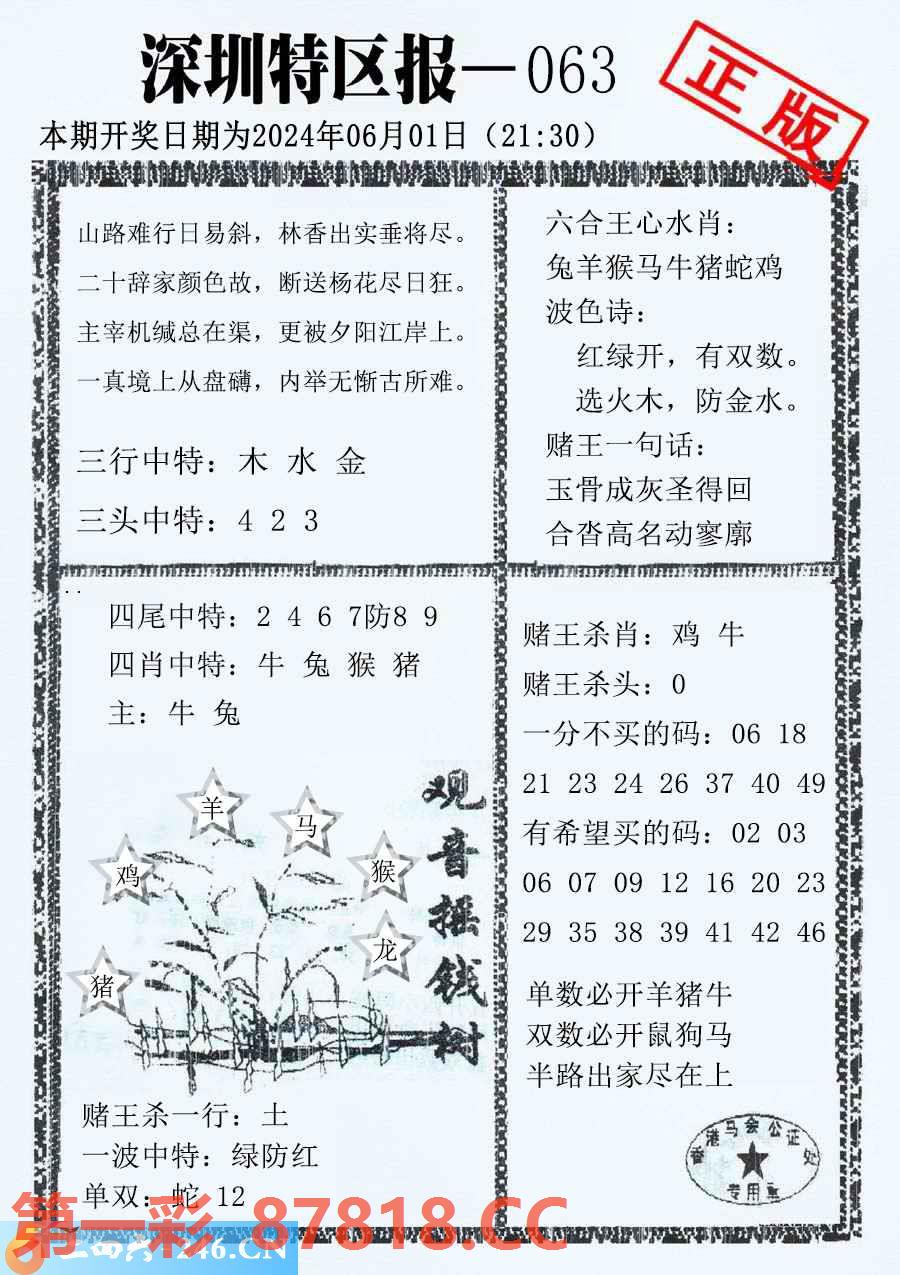 深圳特区报－063
正版
本期开奖日期为2024年06月01日（21:30）
山路难行日易斜，林香出实垂将尽。
二十辞家颜色故，断送杨花尽日狂。
主宰机缄总在渠，更被夕阳江岸上。
一真境上从盘礴，内举无惭古所难。
三行中特：木 水 金
三头中特：4 2 3
六合王心水肖：
兔羊猴马牛猪蛇鸡
波色诗：
红绿开，有双数。
选火木，防金水。
赌王一句话：
玉骨成灰圣得回
合沓高名动寥廓
四尾中特：2 4 6 7防8 9
四肖中特：牛 兔 猴 猪
主：牛 兔
羊
马
鸡
猴
龙
猪
观音摇钱树
赌王杀一行：土
一波中特：绿防红
单双：蛇 12
赌王杀肖：鸡 牛
赌王杀头：0
一分不买的码：06 18
21 23 24 26 37 40 49
有希望买的码：02 03
06 07 09 12 16 20 23
29 35 38 39 41 42 46
单数必开羊猪牛
双数必开鼠狗马
半路出家尽在上
香港马会公证处
专用章
第一彩 87818.CC
246.CN